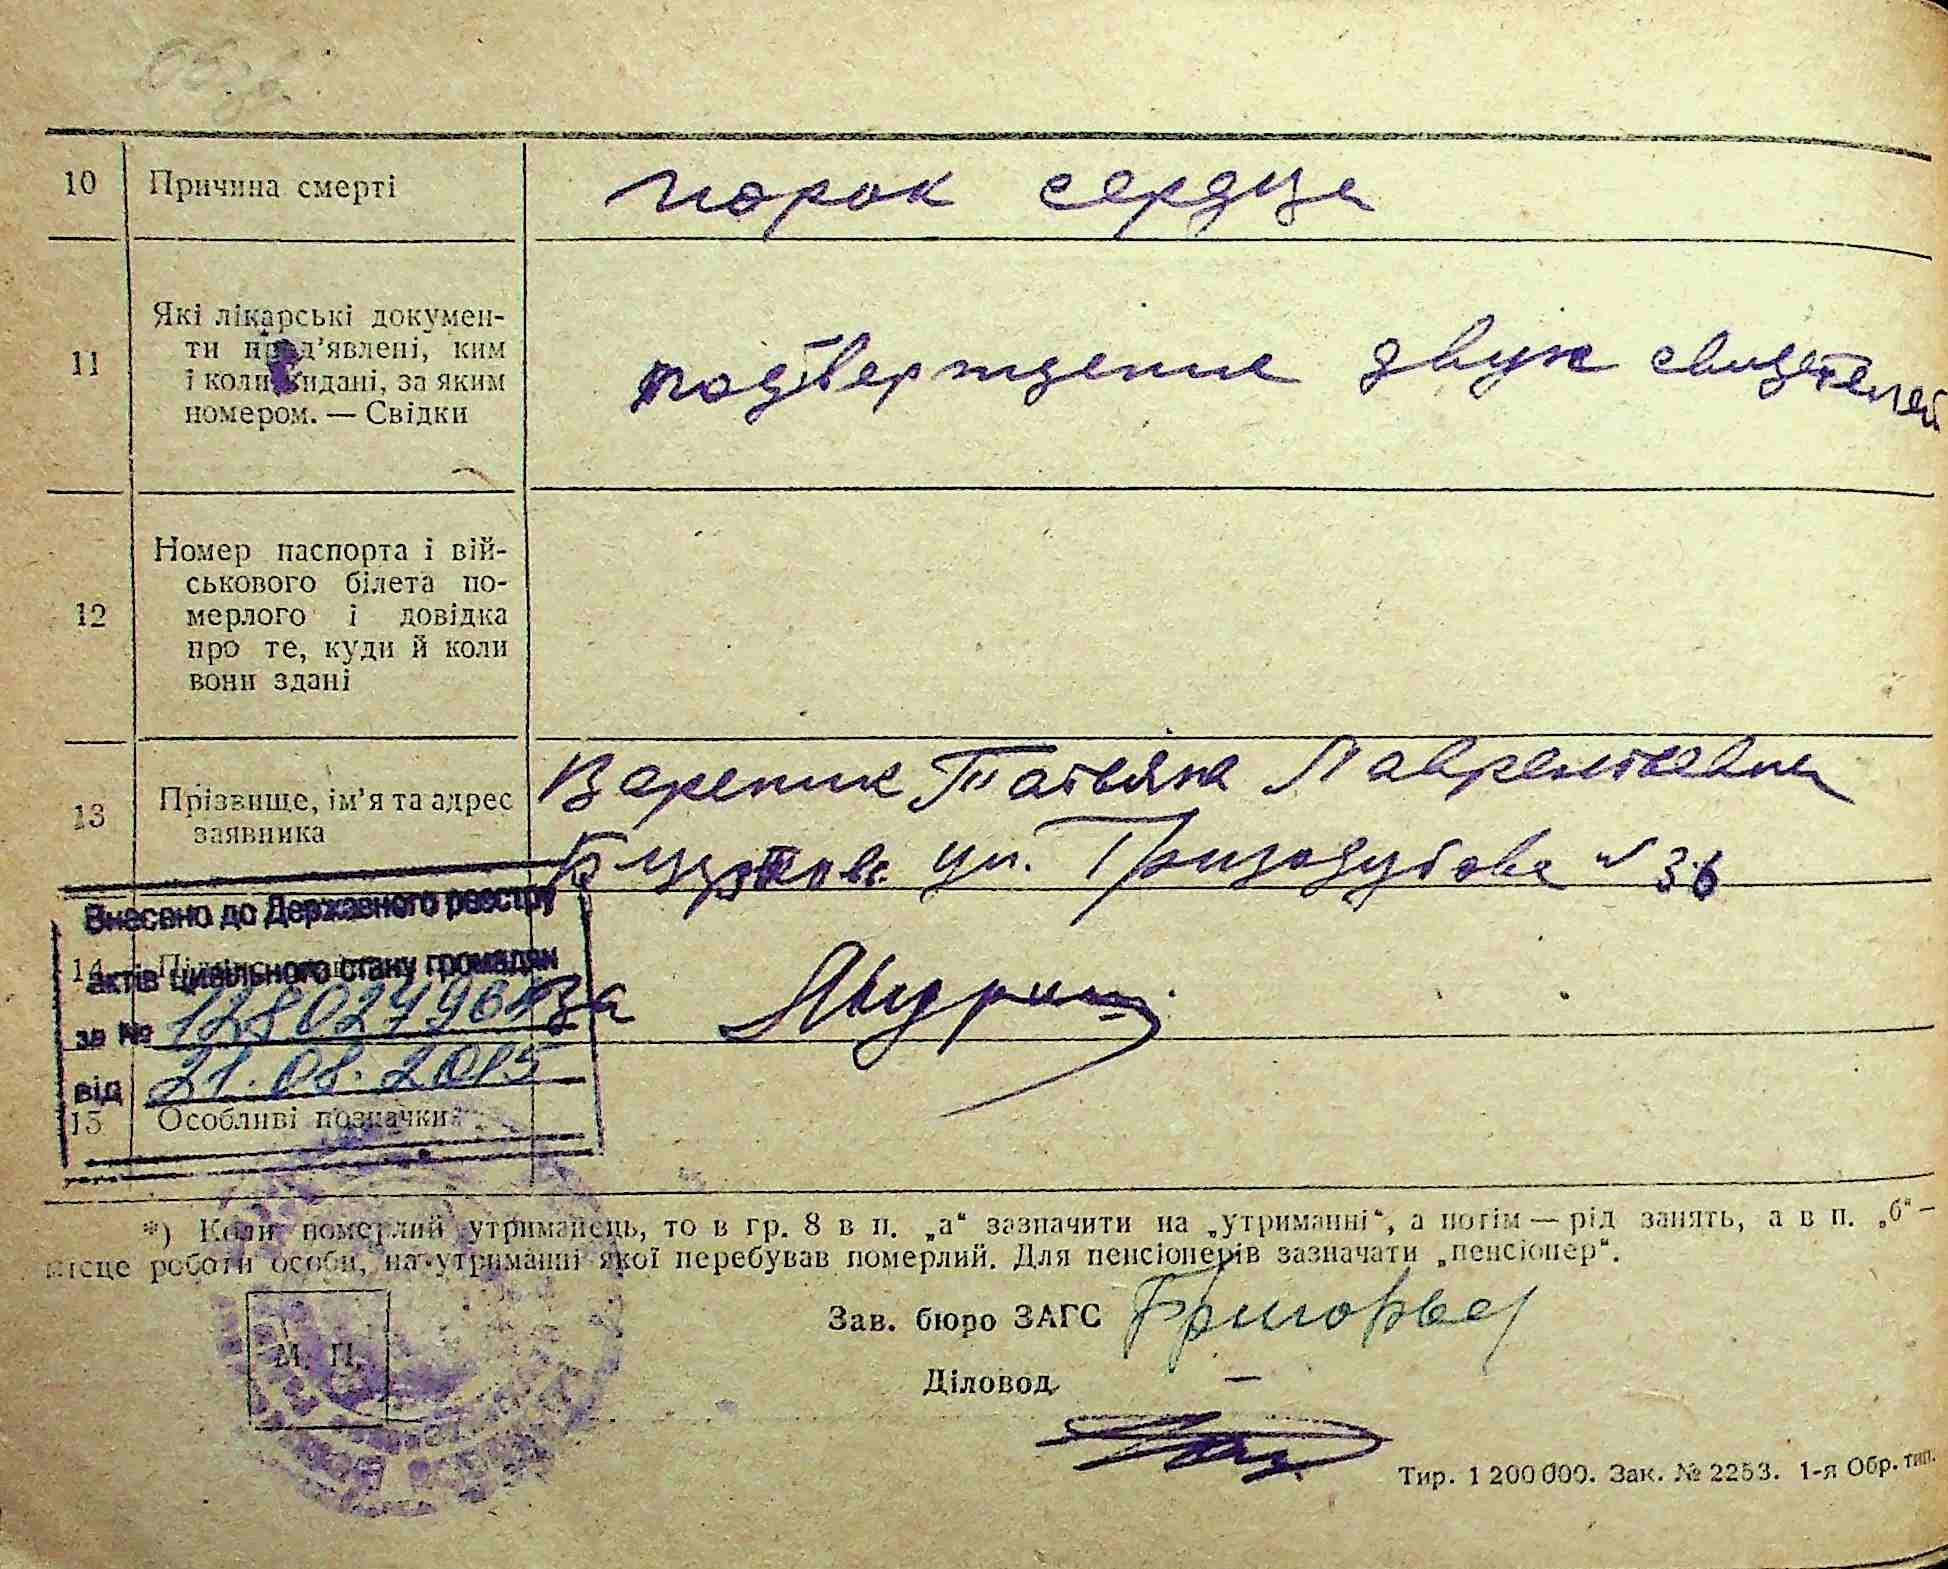 10 Причина смерті порок сердца
11 Які лікарські докумен-
ти пред’явлені, ким
і коли видані, за яким
номером. — Свідки
подтверждение двух свидетелей
12 Номер паспорта і вій-
ськового білета по-
мерлого і довідка
про те, куди й коли
вони здані
13 Прізвище, ім’я та адрес
заявника
Вареник Татьяна Лаврентьевна
ул. Гризодубова № 36
Внесено до Державного реєстру
14
актів цивільного стану громадян
за № 
за
від 21.08.2015
15 Особливі позначки
*) Коли померлий утриманець, то в гр. 8 в п. „а“ зазначити на „утриманні“, а потім — рід занять, а в п. „б“ —
місце роботи особи, на утриманні якої перебував померлий. Для пенсіонерів зазначати „пенсіонер“.
М. П.
Зав. бюро ЗАГС
Діловод —
Тир. 1 200 000. Зак. № 2253. 1-я Обр. тип.